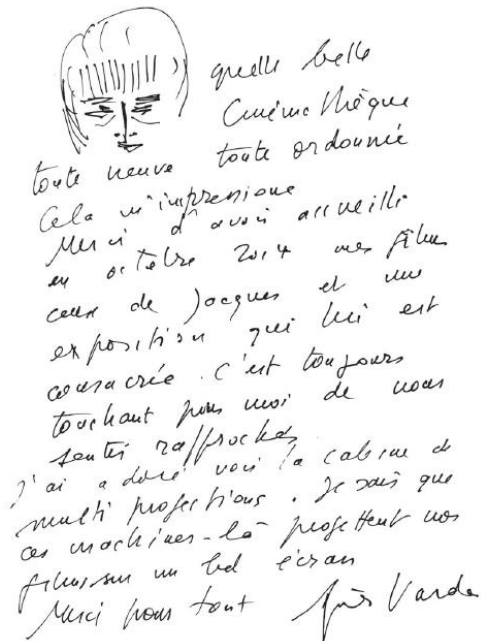 quelle belle
Cinémathèque
toute neuve toute ordonnée
Cela m'impressione
Merci d'avoir accueilli
en octobre 2014 mes films
ceux de Jacques et une
exposition qui lui est
consacrée. C'est toujours
touchant pour moi de nous
sentir rapprochés
J'ai adoré voir la cabine de
multi projections. Je sais que
ces machines-là projettent nos
films sur un bel écran
Merci pour tout Agnès Varda